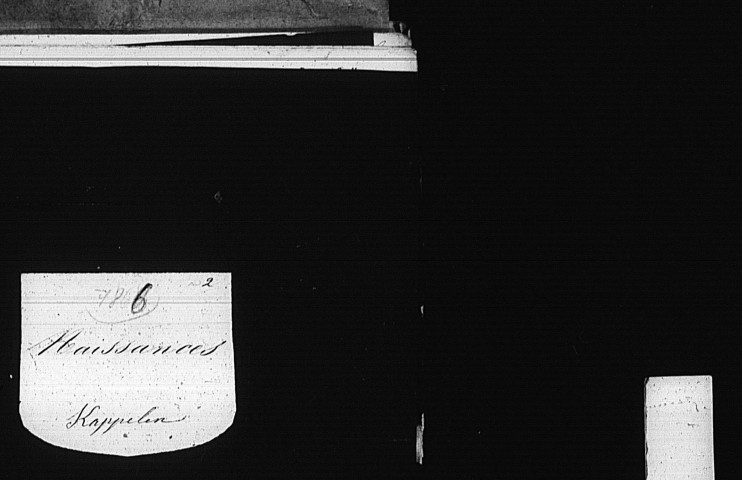 2
6
Naissances
Kappelen